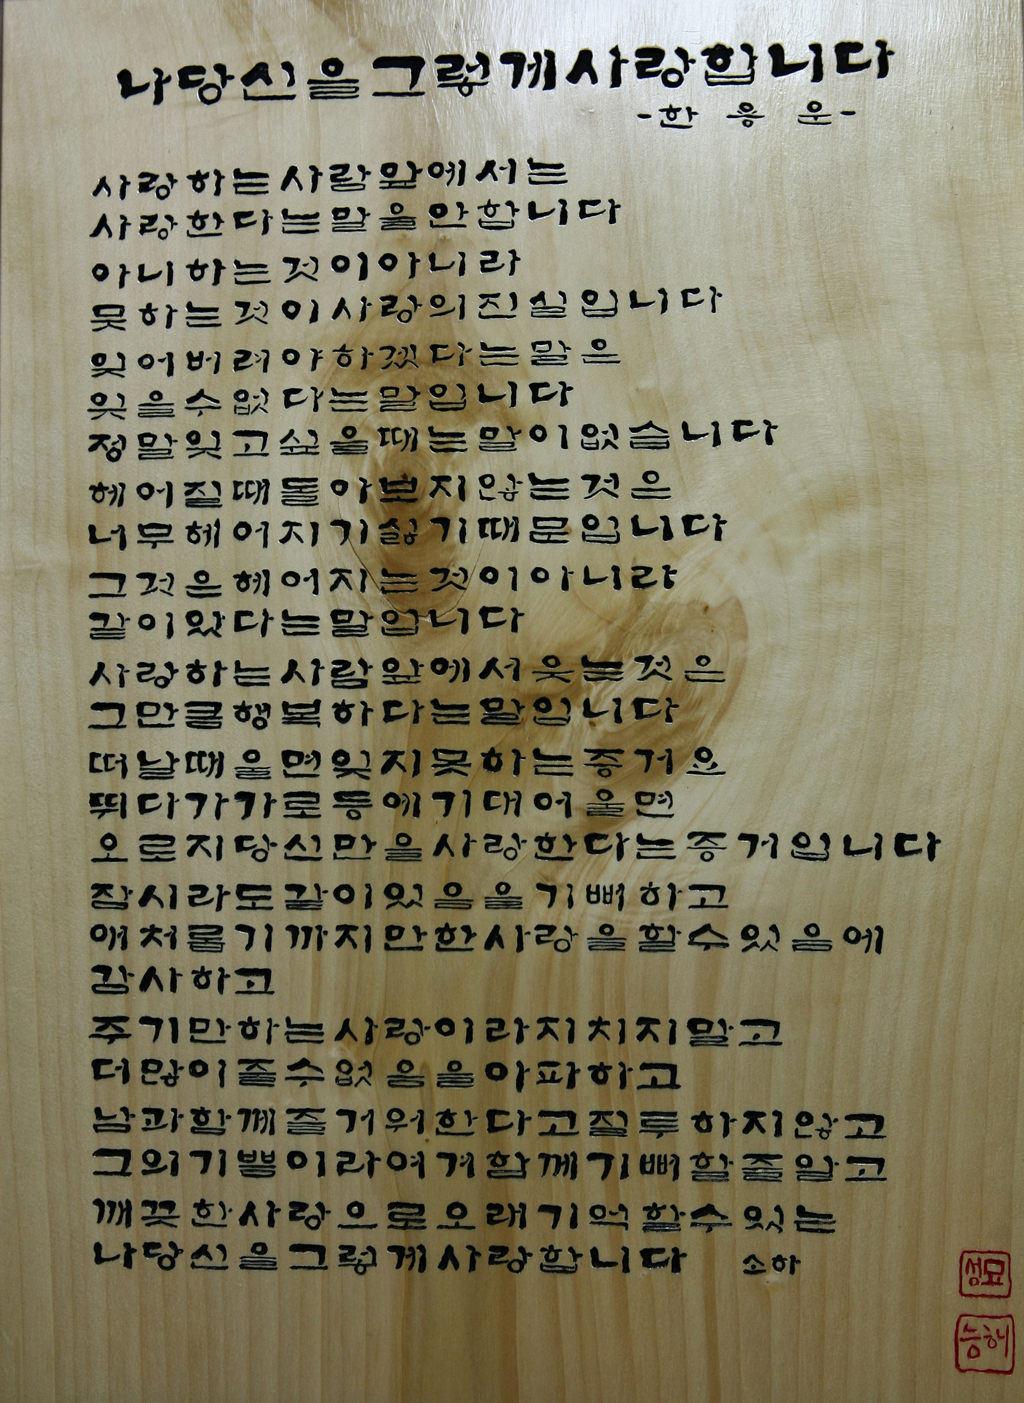 나당신을그렇게사랑합니다
-한 용 운-
사랑하는사람앞에서는
사랑한다는말을안합니다
아니하는것이아니라
못하는것이사랑의진실입니다
잊어버려야하겠다는말은
잊을수없다는말입니다
정말잊고싶을때는말이없습니다
헤어질때돌아보지않는것은
너무헤어지기싫기때문입니다
그것은헤어지는것이아니라
같이있다는말입니다
사랑하는사람앞에서웃는것은
그만큼행복하다는말입니다
떠날때울면잊지못하는증거요
뛰다가가로등에기대어울면
오로지당신만을사랑한다는증거입니다
잠시라도같이있음을기뻐하고
애처롭기까지만한사랑을할수있음에
감사하고
주기만하는사랑이라지치지말고
더많이줄수없음을아파하고
남과함께즐거워한다고질투하지않고
그의기쁨이라여겨함께기뻐할줄알고
깨끗한사랑으로오래기억할수있는
나당신을그렇게사랑합니다 소하
성묘
능허